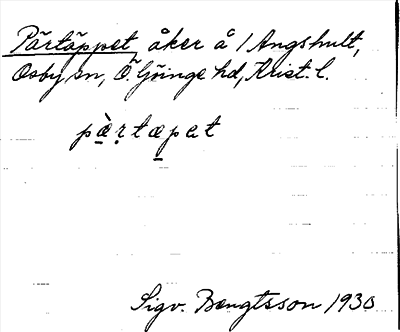 Pärtäppet åker å 1 Ängshult,
Osby sn, Ö Göinge hd, Krist. l.
pæ̀rtæpet
Sigv. Bengtsson 1930